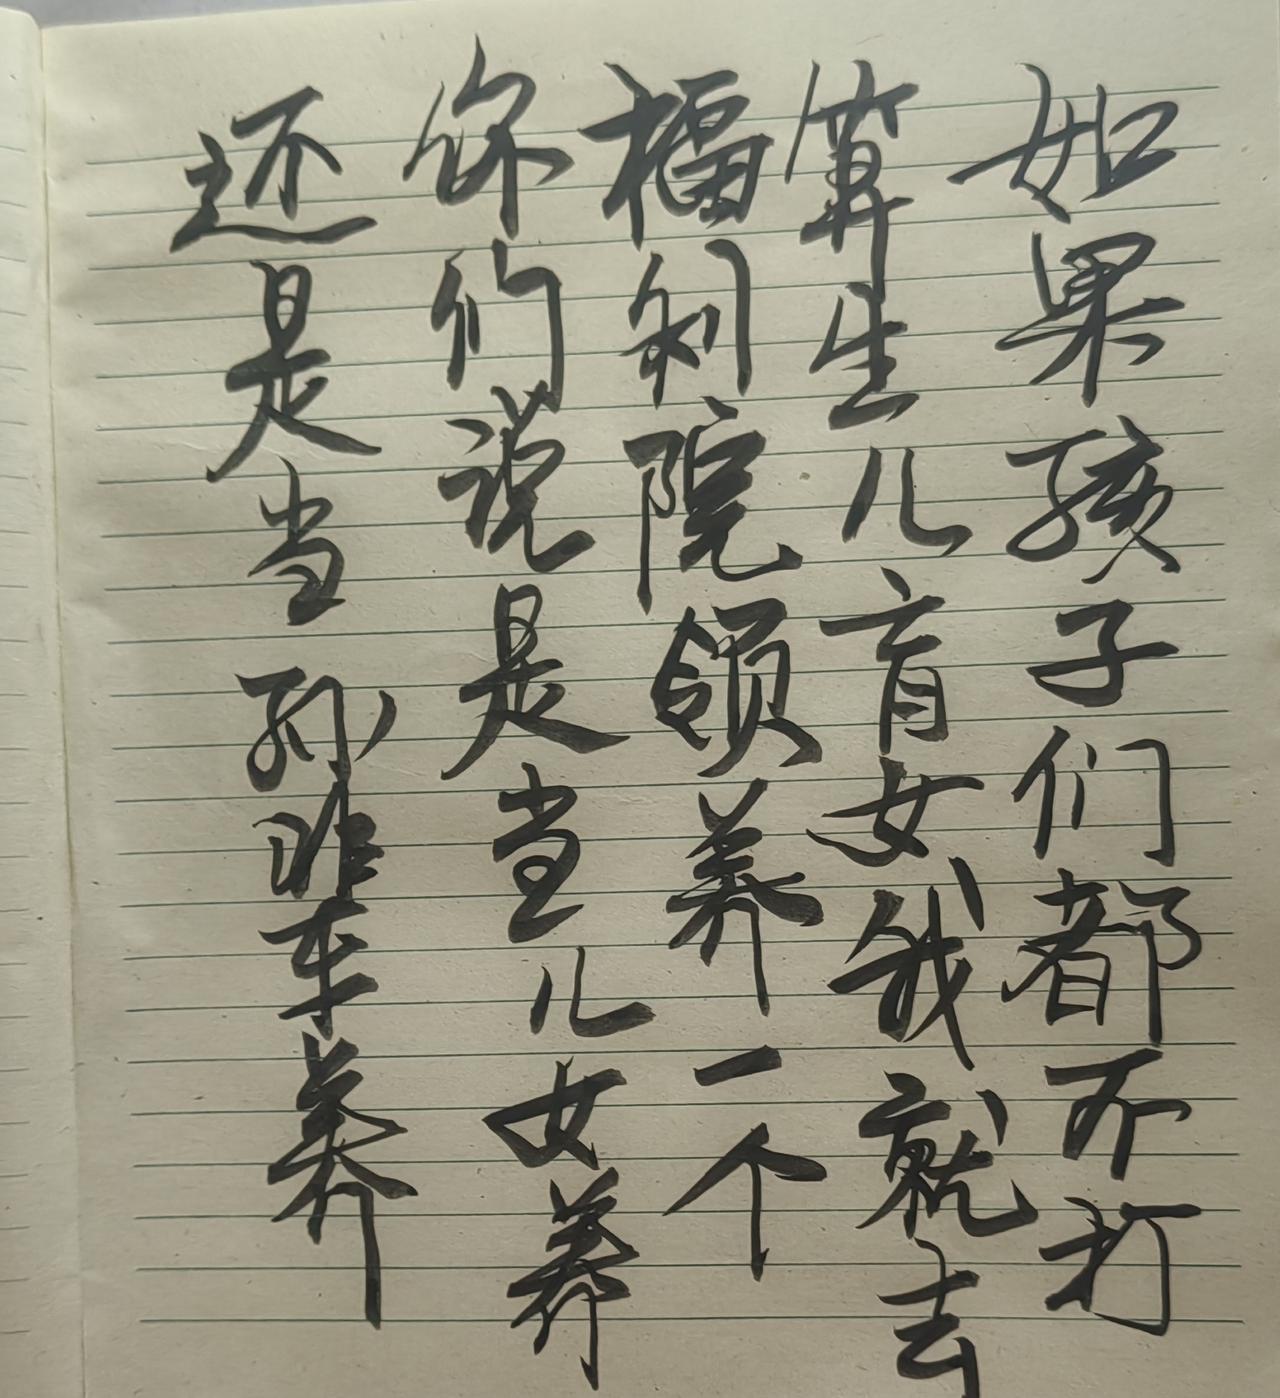 如果孩子们都不打
算生儿育女我就去
福利院领养一个
你们说是当儿女养
还是当孙辈养